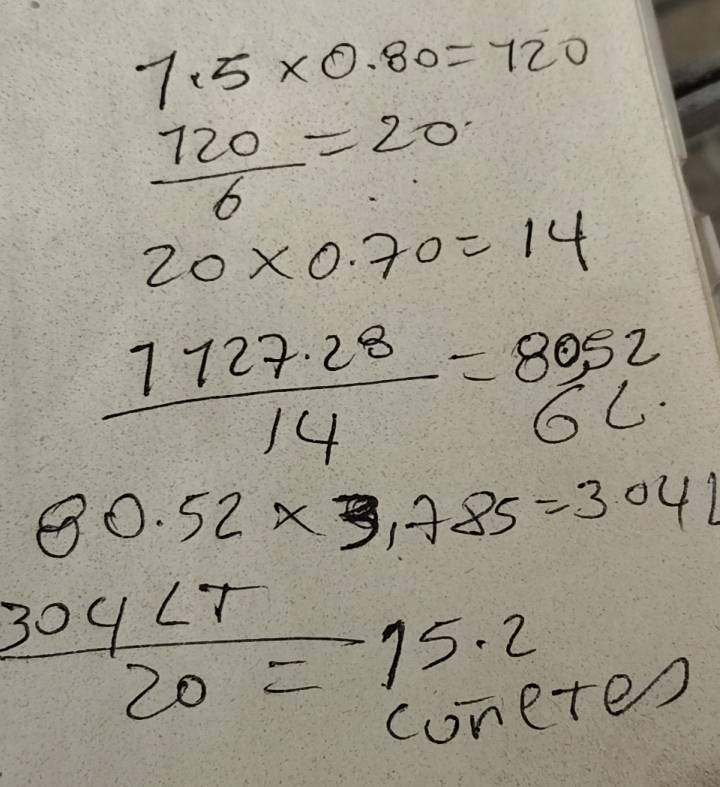 1.5 x 0.80 = 120
120
6
= 20
20 x 0.70 = 14
1127.28
14
= 80,52
GL.
80.52 x 3,785 = 304 L
304 LT
20
= 15.2
cuñetes